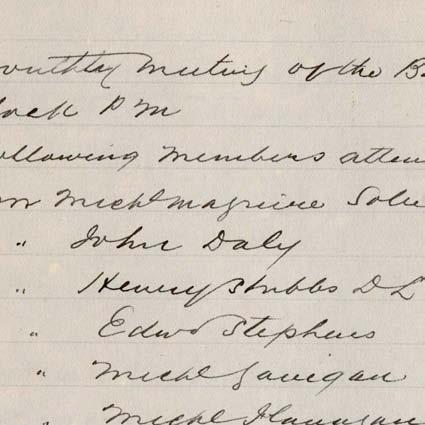 onthly Meeting of the B
lock P M
ollowing Members atten
on Michl Maguire Soli
" John Daly
" Henry Stubbs D L
" Edwd Stephens
" Michl Gavigan
Michl Flanagan